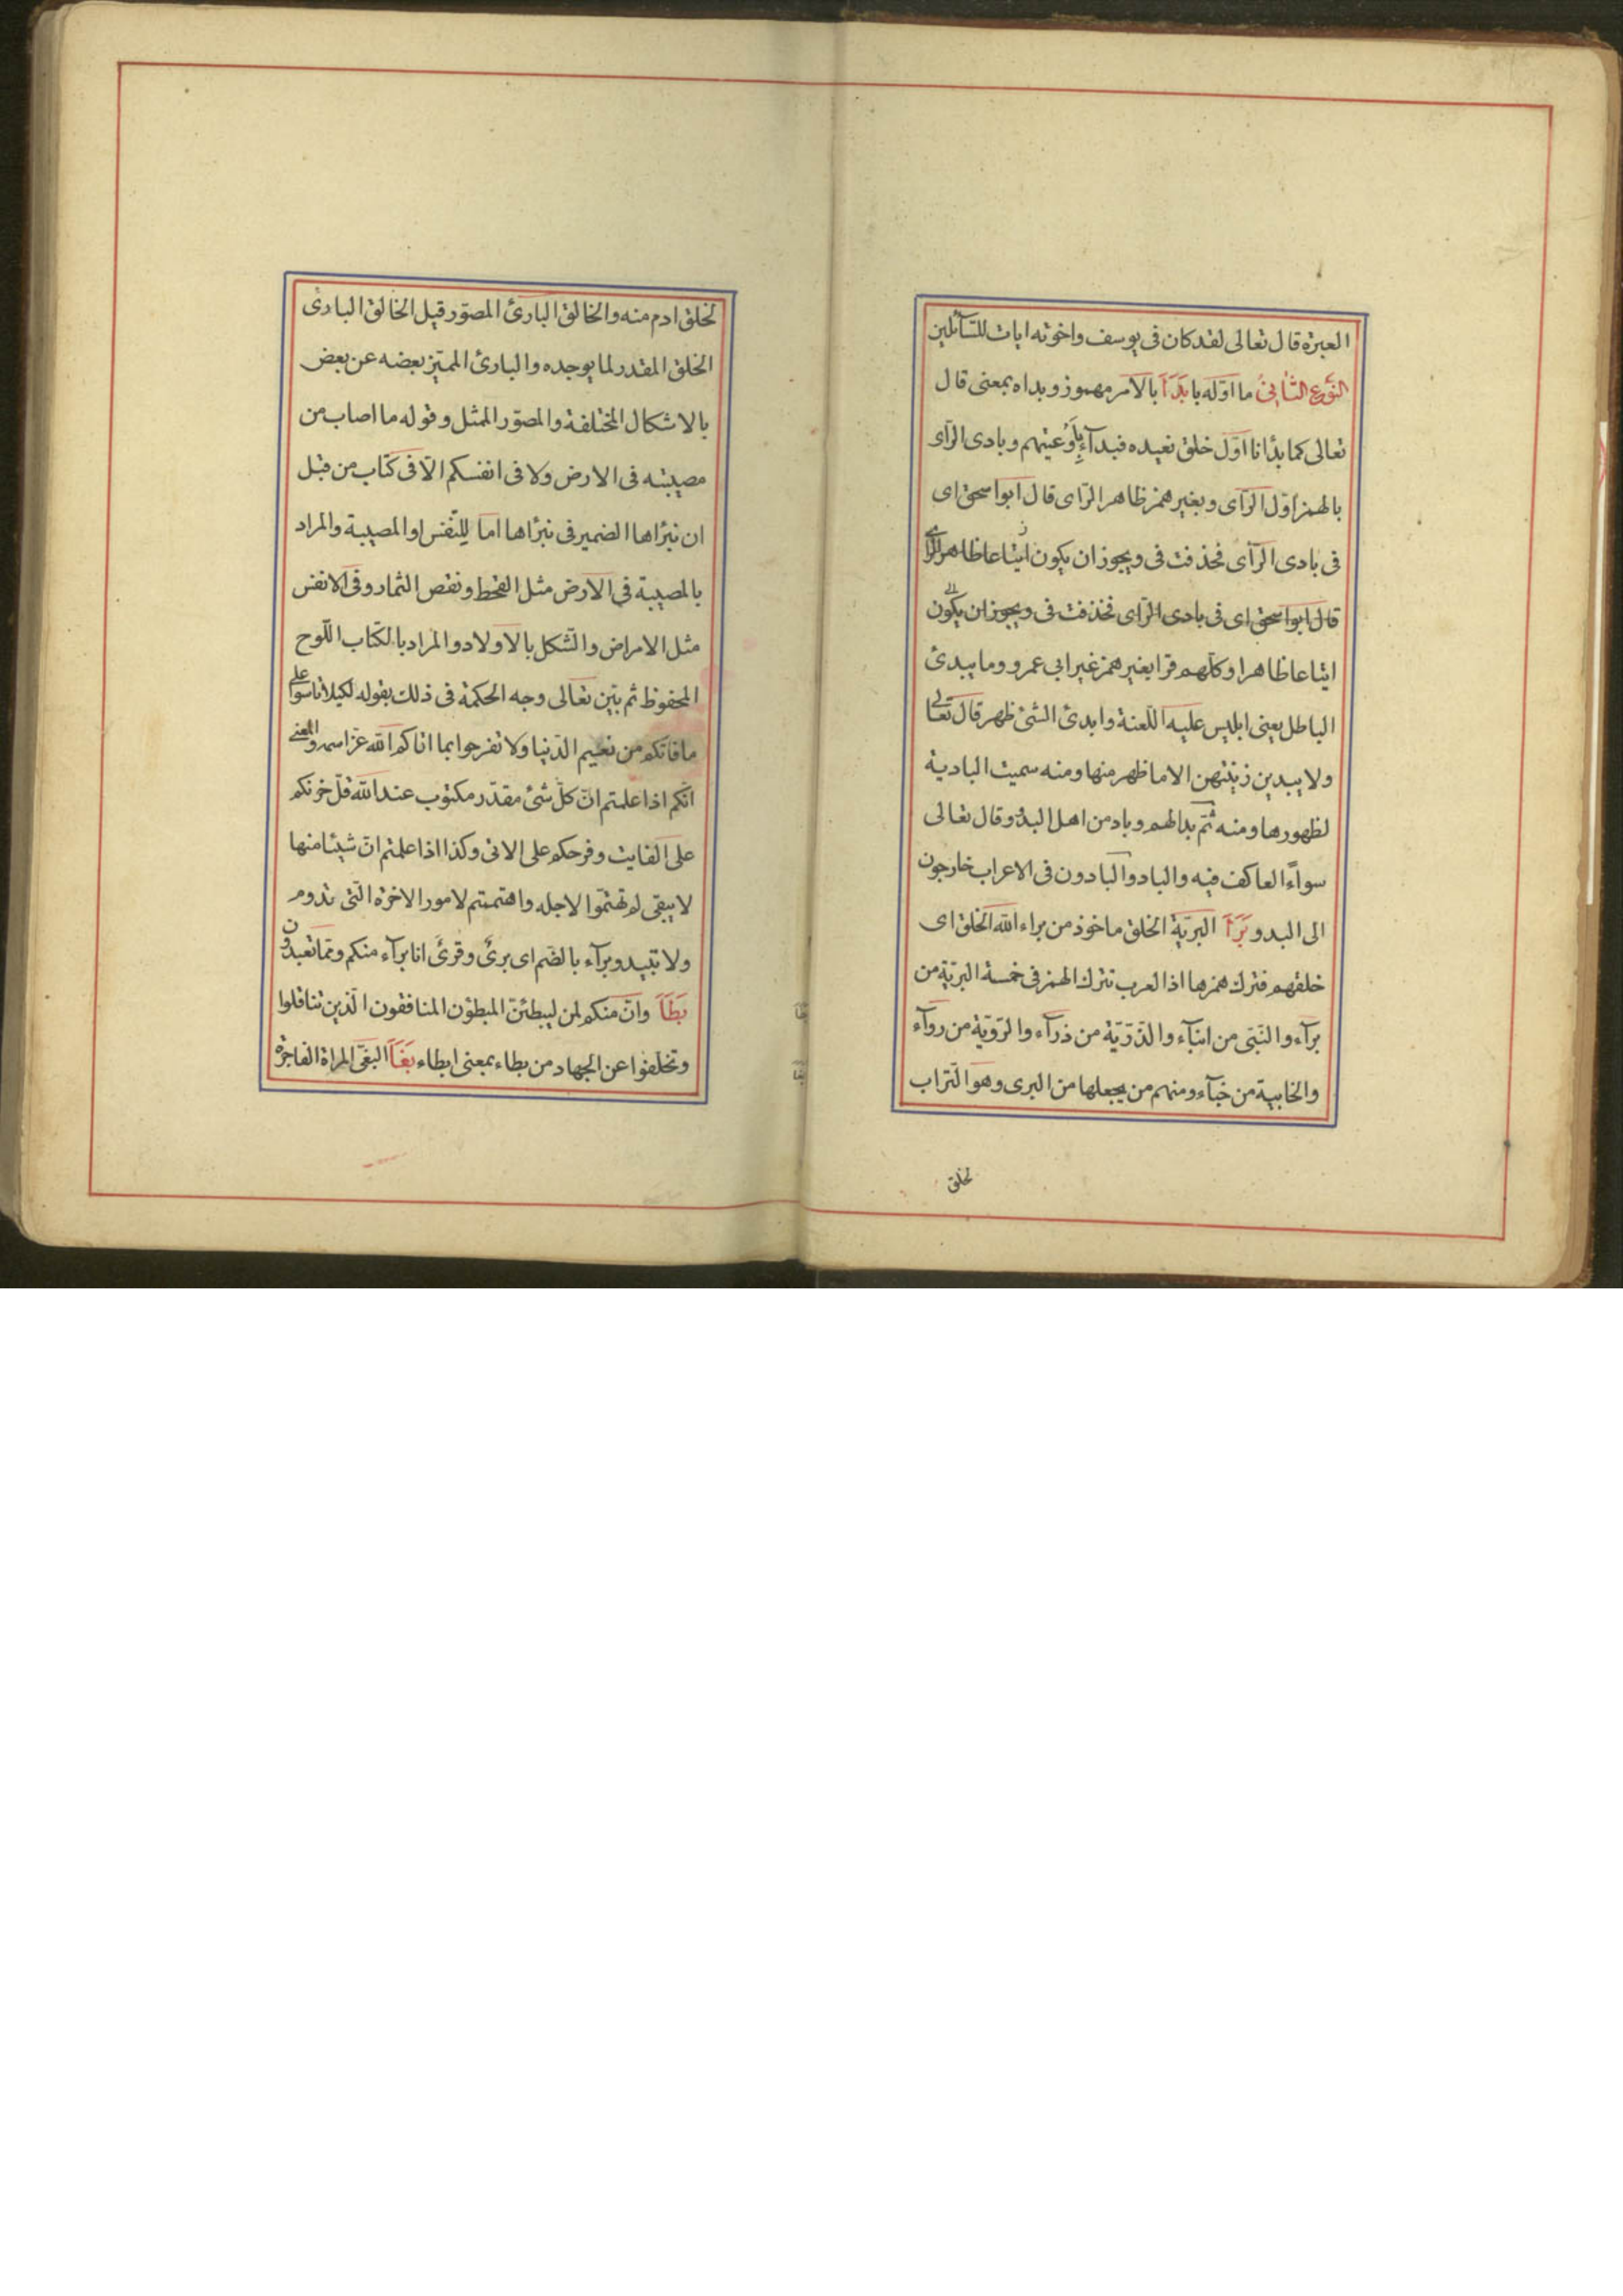 العبرة قال تعالى لقد كان فى يوسف واخوته ايات للسآئلين
النّوع الثّانى ما اوّله با بَدَأَ بالأمر مهموز وبداه بمعنى قال
تعالى كما بدأنا اوّل خلق نعيده فبدآء بِأَوْعيتهم وبادى الرّاى
بالهمز اوّل الرّاى وبغير همز ظاهر الرّاى قال ابواسحق اى
فى بادى الرّأى فحذفت فى ويجوز ان يكون اتباعا ظاهر الرّاى
قال ابواسحق اى فى بادى الرّاى فحذفت فى ويجوز ان يكون
اتباعا ظاهرا وكلّهم قرا بغير همز غير ابى عمرو وما يبدئ
الباطل يعنى ابليس عليه اللّعنة وابدئ الشئ ظهر قال تعالى
ولا يبدين زينتهن الا ما ظهر منها ومنه سميت البادية
لظهورها ومنه ثمّ بدا لهم وباد من اهل البدو وقال تعالى
سوآءً العاكف فيه والباد والبادون فى الاعراب خارجون
الى البدو بَرَأَ البريّة الخلق ماخوذ من براء اللّه الخلق اى
خلقهم فترك همزها اذا لعرب تترك الهمز فى خمسة البريّة من
برآء والنّبى من انبآء والذّرّيّة من ذرآء والرّويّة من روآء
والخابية من خبآء ومنهم من يجعلها من البرى وهو التراب
لخلق
لخلق ادم منه والخالق البارئ المصوّر قيل الخالق البارئ
الخلق المقدر لما يوجده والبارئ المميّز بعضه عن بعض
بالاشكال المختلفة والمصوّر الممثل وقوله ما اصاب من
مصيبته فى الارض ولا فى انفسكم الّا فى كتاب من قبل
ان نبرٔاها الضمير فى نبرٔاها امّا للنّفس او المصيبة والمراد
بالمصيبة فى الارض مثل القحط ونقص الثمار وفى الانفس
مثل الامراض والثّكل بالاولاد والمراد بالكتاب اللّوح
المحفوظ ثم بيّن تعالى وجه الحكمة فى ذلك بقوله لكيلا تاسوا على
ما فاتكم من نعيم الدّنيا ولا تفرحوا بما اتاكم اللّه عزّ اسمه والمعنى
انّكم اذا علمتم انّ كلّ شئ مقدّر مكتوب عند اللّه قلّ حزنكم
على الفايت وفرحكم على الاتى وكذا اذا علمتم انّ شيئا منها
لا يبقى لم تهتمّوا لاجله واهتممتم لامور الاخرة الّتى تدوم
ولا تبيد وبرآء بالضّم اى برئ وقرئ انا برآء منكم وممّا تعبدون
بَطَأَ وانّ منكم لمن ليبطئنّ المبطؤن المنافقون الّذين تثاقلوا
وتخلفوا عن الجهاد من بطاء بمعنى ابطاء بَغَأَ البغىّ المراة الفاجرة